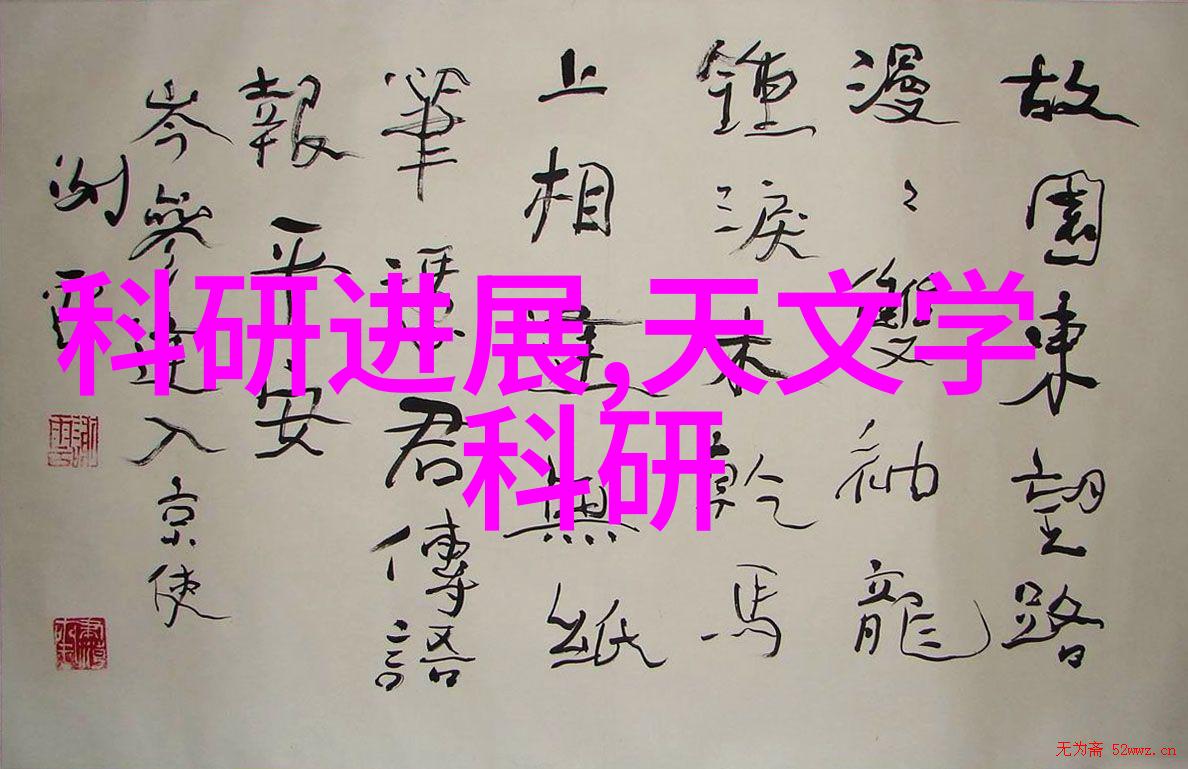 科研进展,天文学
科研
故園東望路
漫〻雙袖龍
鍾淚未乾馬
上相逢無紙
筆憑君傳語
報平安
岑參逢入京使
无为斋 52wwz.cn